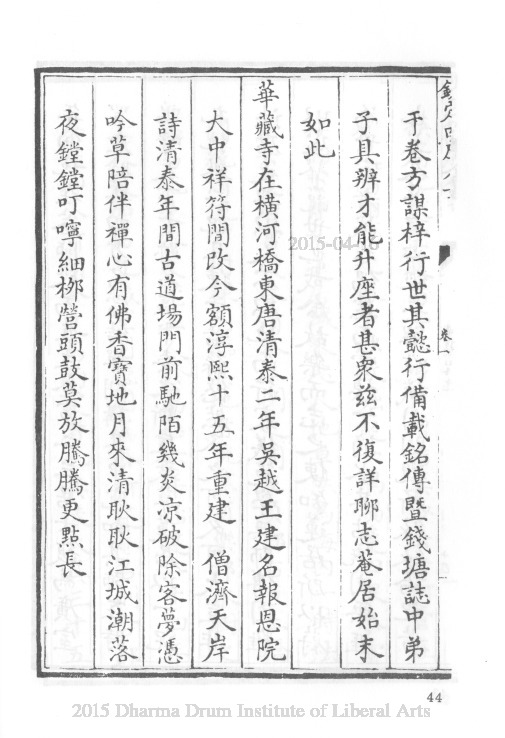 卷一
干卷方謀梓行世其懿行備載銘傳暨錢塘誌中弟
子具辨才能升座者甚衆兹不復詳聊志菴居始末
如此
華藏寺在橫河橋東唐清泰二年吳越王建名報恩院
大中祥符間改今額淳熙十五年重建 僧濟天岸
詩清泰年間古道場門前馳陌幾炎凉破除客夢憑
吟草陪伴禪心有佛香寶地月來清耿耿江城潮落
夜鏜鏜叮嚀細栁營頭鼓莫放騰騰更點長
2015-04-
44
2015 Dharma Drum Institute of Liberal Arts